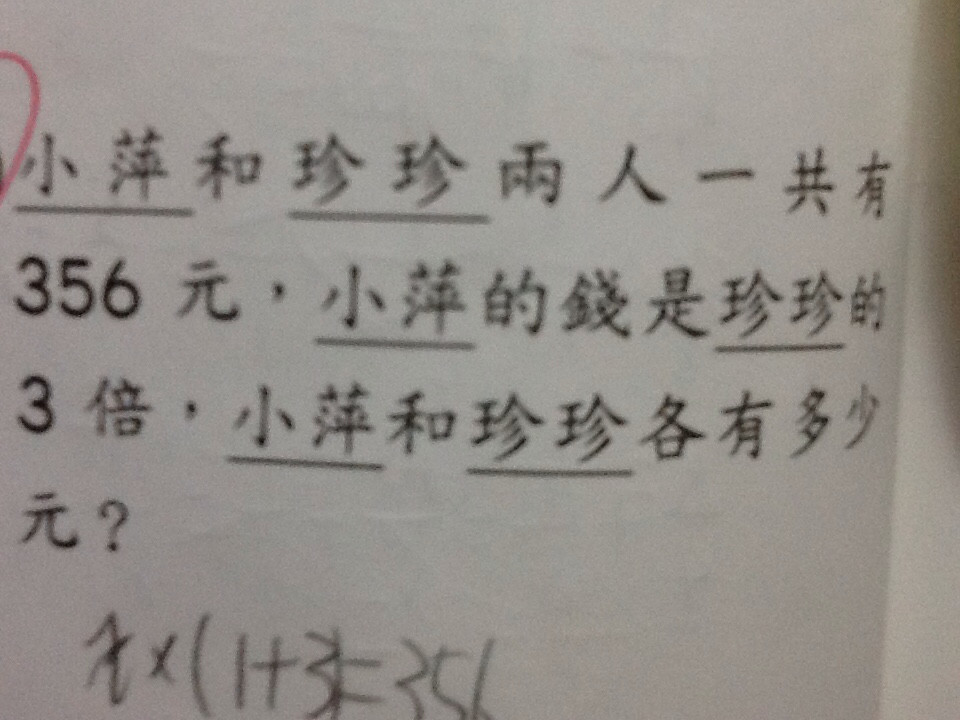 小萍和珍珍兩人一共有
356 元，小萍的錢是珍珍的
3 倍，小萍和珍珍各有多少
元？
×(1+3)=356